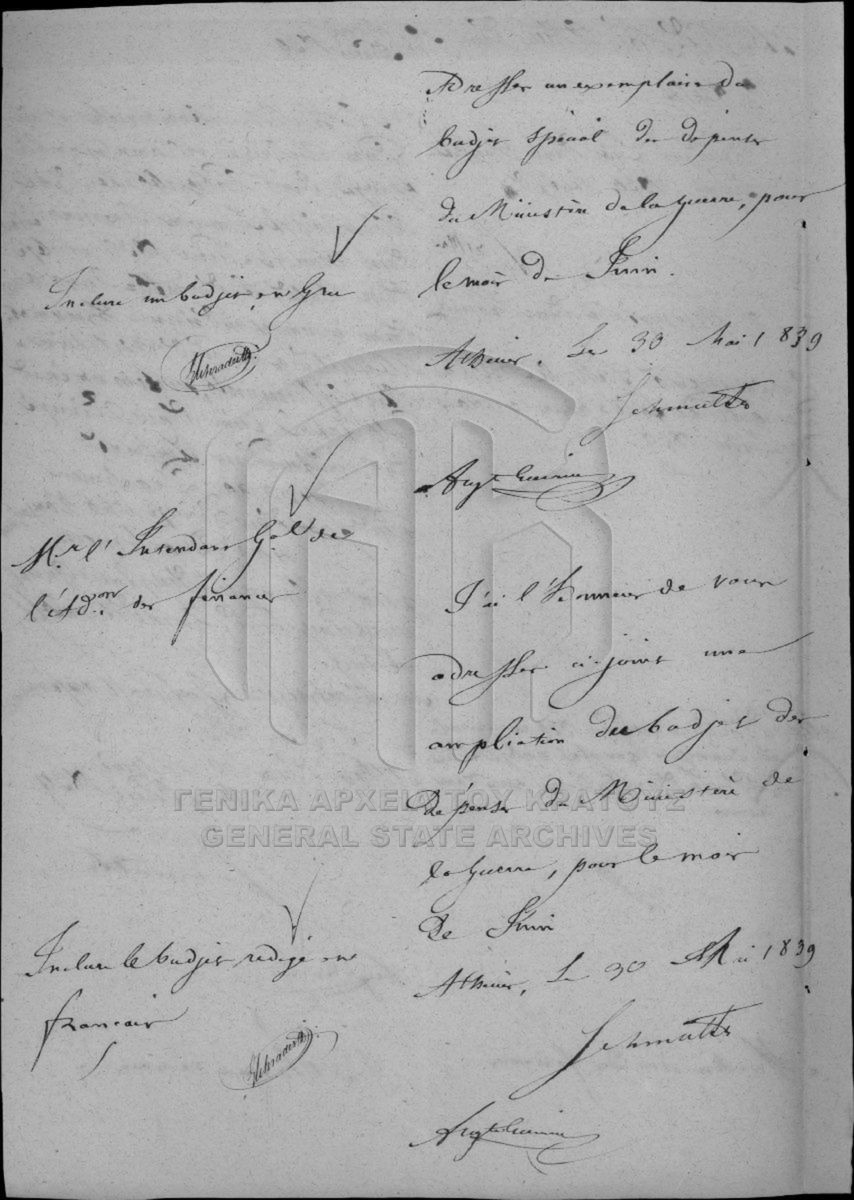 Adresser un exemplaire du
budjet spécial des dépenses
du Ministère de la Guerre, pour
le mois de Juin.
Inclure un budjet en Grec
Athènes, Le 30 Mai 1839
Schmaltz
Mr. l'Intendant Gal de
l'Adon des finances
J'ai l'honneur de vous
adresser ci-joint une
ampliation du budjet des
dépenses du Ministère de
la Guerre, pour le mois
de Juin
Inclure le budjet redigé en
francais
Athènes, Le 30 Mai 1839
Schmaltz
ΓΕΝΙΚΑ ΑΡΧΕΙΑ ΤΟΥ ΚΡΑΤΟΥΣ
GENERAL STATE ARCHIVES